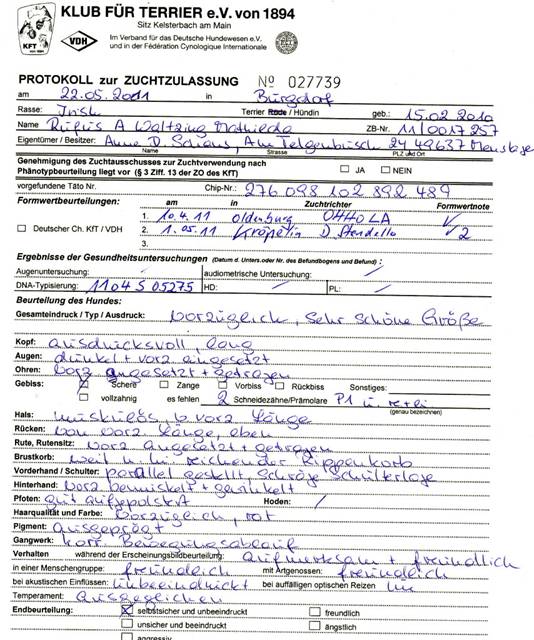 KLUB FÜR TERRIER e.V. von 1894
Sitz Kelsterbach am Main
KfT
von 1894
VDH
Im Verband für das Deutsche Hundewesen e.V.
und in der Fédération Cynologique Internationale
PROTOKOLL zur ZUCHTZULASSUNG No 027739
am 22.05.2011 in Burgdorf
Rasse: Irish Terrier Rüde / Hündin geb.: 15.02.2010
Name Rufus A Waltzing Mathilda ZB-Nr. 11/0017257
Eigentümer / Besitzer: Anne D. Am 24 49637 Menslage
Name Strasse PLZ und Ort
Genehmigung des Zuchtausschusses zur Zuchtverwendung nach
Phänotypbeurteilung liegt vor (§ 3 Ziff. 13 der ZO des KfT) JA NEIN
vorgefundene Täto Nr. Chip-Nr.: 276 098 102 892 489
Formwertbeurteilungen: am in Zuchtrichter Formwertnote
1. 10.4.11 Oldenburg OHHOLA V
Deutscher Ch. KfT / VDH 2. 1.05.11 Kröpelin D. V2
3.
Ergebnisse der Gesundheitsuntersuchungen (Datum d. Unters. oder Nr. des Befundbogens und Befund):
Augenuntersuchung: / audiometrische Untersuchung: /
DNA-Typisierung: 1104 S 05275 HD: / PL: /
Beurteilung des Hundes:
Gesamteindruck / Typ / Ausdruck: vorzüglich, sehr schöne Größe
Kopf: ausdrucksvoll, lang
Augen: dunkel + vorz. eingesetzt
Ohren: vorz. angesetzt + getragen
Gebiss: Schere Zange Vorbiss Rückbiss Sonstiges:
vollzahnig es fehlen 2 Schneidezähne/Prämolare P1 u
(genau bezeichnen)
Hals: muskulös, v. vorz. Länge
Rücken: von vorz. Länge, eben
Rute, Rutensitz: vorz. angesetzt + getragen
Brustkorb: weit m. reichender Rippenkorb
Vorderhand / Schulter: parallel gestellt, schräge Schulterlage
Hinterhand: vorz. bemuskelt + gewinkelt
Pfoten: gut aufgepolstert Hoden: /
Haarqualität und Farbe: vorzüglich, rot
Pigment: ausgeprägt
Gangwerk: korr. Bewegungsablauf
Verhalten während der Erscheinungsbildbeurteilung: aufmerksam + freundlich
in einer Menschengruppe: freundlich mit Artgenossen: freundlich
bei akustischen Einflüssen: unbeeindruckt bei auffälligen optischen Reizen:
Temperament: ausgeglichen
Endbeurteilung: selbstsicher und unbeeindruckt freundlich
unsicher und beeindruckt ängstlich
aggressiv